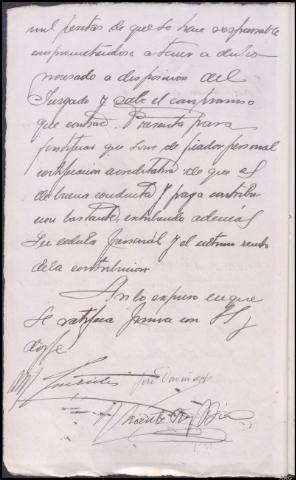 mil pesetas de que se hace responsable
comprometiendose a tener a dicho
procesado a disposicion del
Juzgado y sabe el compromiso
que contrae. Presenta para
justificar que sirve de fiador personal
certificacion acreditativa de que es
de buena conducta y paga contribu
cion bastante, exhibiendo ademas
su cedula personal y el ultimo recibo
de la contribucion
Asi lo expuso en que
se ratifica firma con S.S.
doy fe
José
Vicente